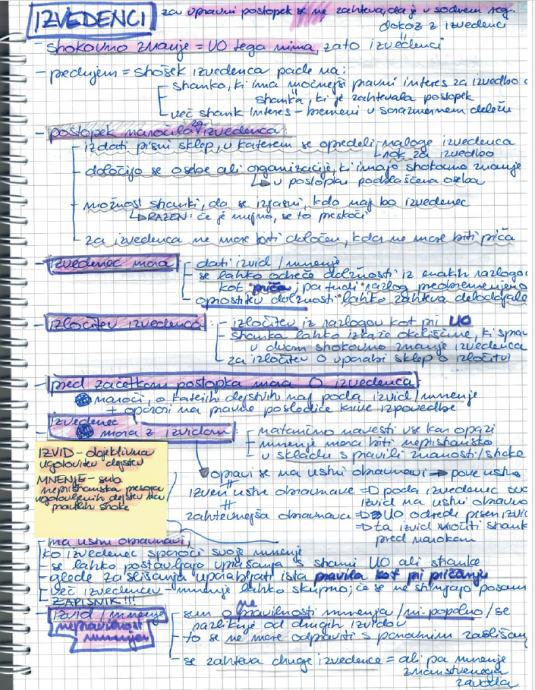 IZVEDENCI
za upravni postopek se ne zahteva, da je v sodnem reg.
dokaz z izvedenci
- strokovno znanje = UO tega nima, zato izvedenci
- predujem = strošek izvedenca pade na:
stranko, ki ima močnejši pravni interes za izvedbo
stranka, ki je zahtevala postopek
več strank interes - bremeni v sorazmernem deležu
- postopek naročila izvedenca
izdati pisni sklep, v katerem se opredeli naloge izvedenca
rok za izvedbo
določijo se osebe ali organizacije, ki imajo strokovno znanje
v postopku pooblaščena oseba
možnost stranki, da se izjasni, kdo naj bo izvedenec
RAZEN: če je nujno, se to preskoči
za izvedenca ne more biti določen, kdor ne more biti priča
- izvedenec mora
dati izvid / mnenje
se lahko odreče dolžnosti iz enakih razlogov
kot priča, pa tudi razlog preobremenjeno
oprostitev dolžnosti lahko zahteva delodajalec
- izločitev izvedenca:
izločitev iz razlogov kot pri UO
stranka lahko izkaže okoliščine, ki
v dvom strokovno znanje izvedenca
za izločitev O uporabi sklep o izločitvi
- pred začetkom postopka mora O izvedenca
naroči, o katerih dejstvih naj poda izvid / mnenje
+ opozori na pravne posledice krive izpovedbe
izvedenec
mora z izvidom
natančno navesti vse kar opazi
mnenje mora biti nepristransko
v skladu s pravili znanosti/stroke
IZVID - objektivna
ugotovitev dejstev
MNENJE - sub.
nepristranska presoja
ugotovljenih dejstev
pravilih stroke
opravi se na ustni obravnavi → pove ustno
izven ustne obravnave => poda izvedenec svoj
izvid na ustni obravnavi
zahtevnejša obravnava => UO odredi pisen izvid
=> ta izvid vročiti strank
pred narokom
na ustni obravnavi,
ko izvedenec sporoči svoje mnenje
- se lahko postavljajo vprašanja s strani UO ali stranke
- glede zaslišanja uporabljati ista pravila kot pri pričanju
- več izvedencev - mnenje lahko skupno, če se ne strinjajo posam
ZAPISNIK!!!
- izvid / mnenje
nepravilnost
mnenja
sum o pravilnosti mnenja / ni popolno / se
razlikuje od drugih izvidov
- to se ne more odpraviti s ponovnim zaslišanj
- se zahteva druge izvedence = ali pa mnenje
znanstvenega
zavoda